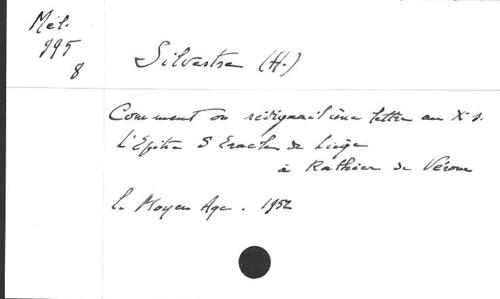 Mél.
995
8
Silvestre (H.)
Comment on rédigeait une lettre au Xe s.
L'Epître d'Eracle de Liège
à Rathier de Vérone
Le Moyen Age. 1952